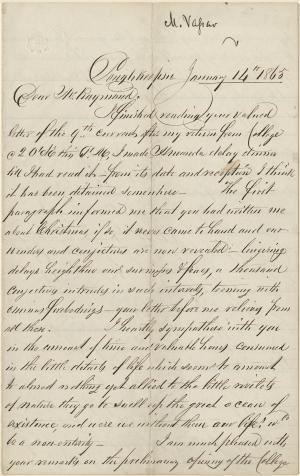 M. Vassar
Poughkeepsie January 14th 1865
Dear Mr. Raymond,
I finished reading your valued
letter of the 9th current after my return from College
@ 2 O'Clk this P.M, I made Amanda delay dinner
till I had read it. From its date and reception I think
it has been detained somewhere — The first
paragraph informed me that you had written me
about Christmas if so, it never came to hand and our
wonders and conjectures are now revealed — lingering
delays heighthen our surmises & fears, a thousand
conjectures intrudes in such intervals, teeming with
ominus forbodings — your letter before me relieves from
all these. I hearty sympathise with you
in the amount of time and valuable hours consumed
in the little details of life which seems to amount
to almost nothing yet allied to the little rivilets
of nature they go to swell up the great ocean of
existence, and were we without them our life wd
be a non-entity — I am much pleased with
your remarks on the preliminary opening of the College